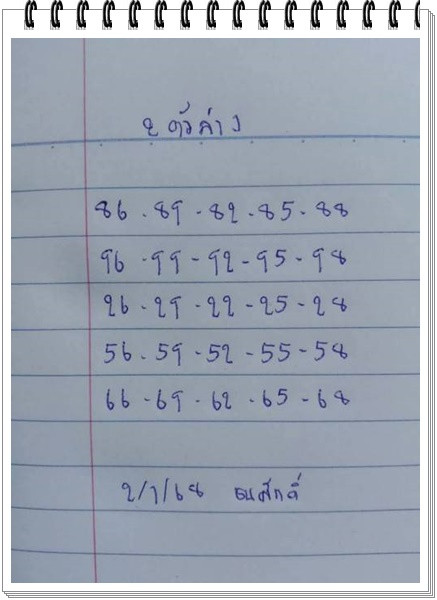 2 ตัวล่าง
86 - 89 - 82 - 85 - 88
96 - 99 - 92 - 95 - 98
26 - 29 - 22 - 25 - 28
56 - 59 - 52 - 55 - 58
66 - 69 - 62 - 65 - 68
2/1/68